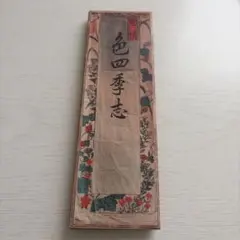 色四季志